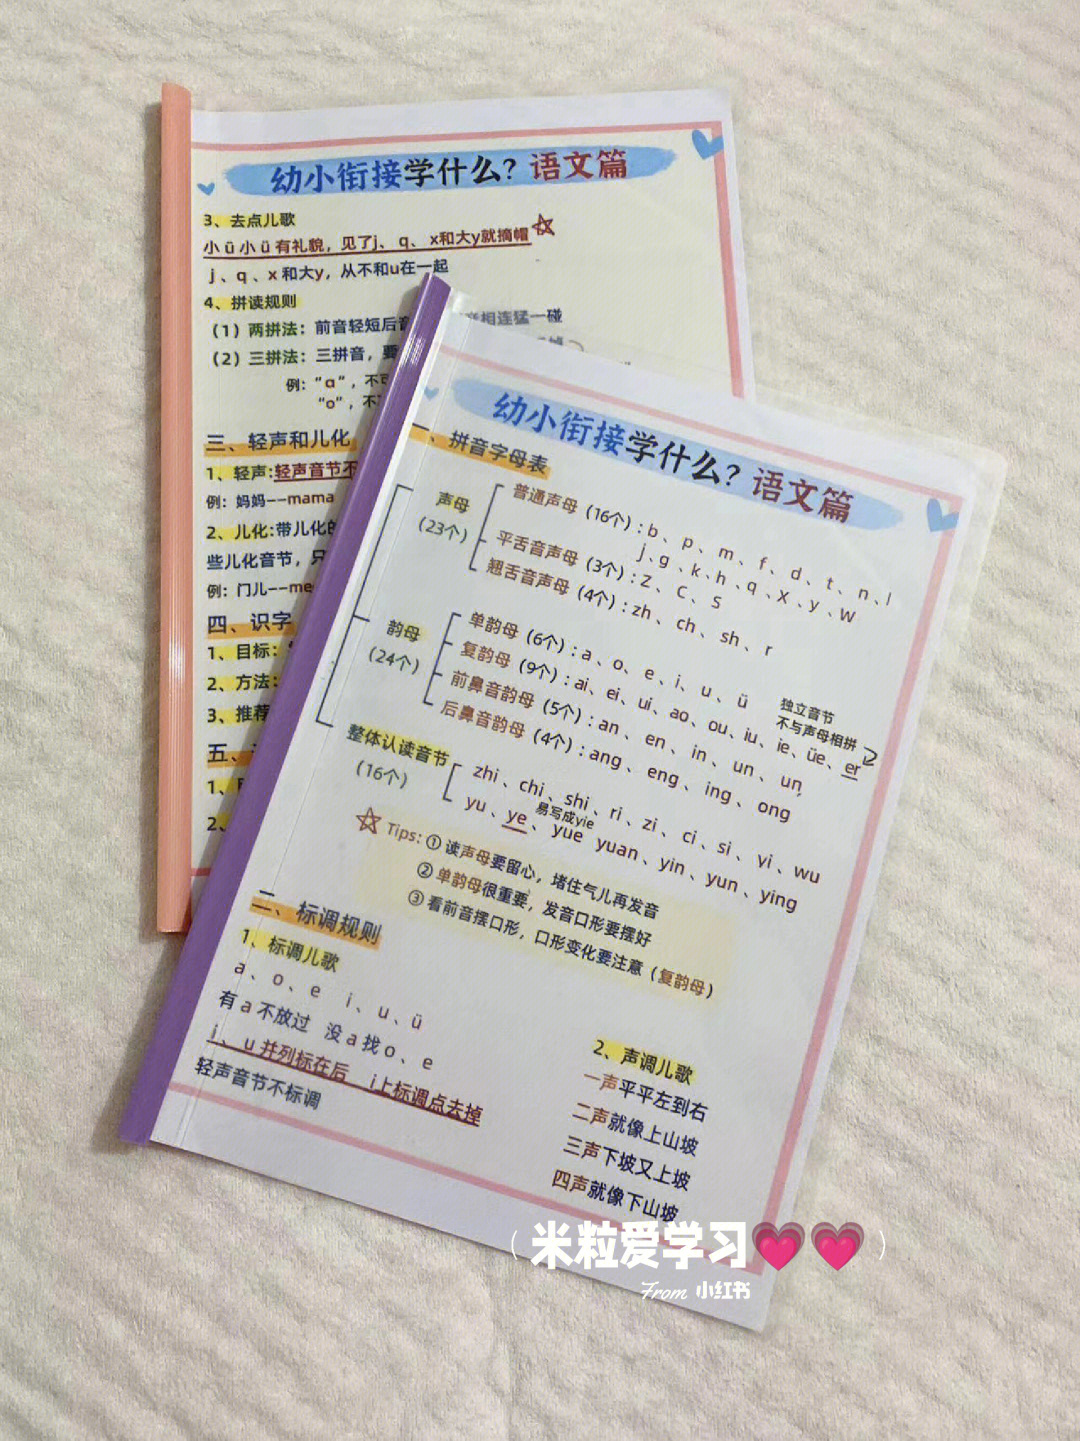 幼小衔接学什么？语文篇
3、去点儿歌
小ü小ü有礼貌，见了j、q、x和大y就摘帽
j、q、x和大y，从不和u在一起
4、拼读规则
（1）两拼法：前音轻短后音相连猛一碰
（2）三拼法：三拼音，要
例：“a”，不可
“o”，不
三、轻声和儿化
1、轻声:轻声音节不
例：妈妈——mama
2、儿化:带儿化的
些儿化音节，只
例：门儿——me
四、识字
1、目标：
2、方法：
3、推荐
五、
1、
2、
幼小衔接学什么？语文篇
一、拼音字母表
声母
（23个）
普通声母（16个）：b、p、m、f、d、t、n、l
j、g、k、h、q、x、y、w
平舌音声母（3个）：z、c、s
翘舌音声母（4个）：zh、ch、sh、r
韵母
（24个）
单韵母（6个）：a、o、e、i、u、ü
复韵母（9个）：ai、ei、ui、ao、ou、iu、ie、üe、er
独立音节
不与声母相拼
前鼻音韵母（5个）：an、en、in、un、un
后鼻音韵母（4个）：ang、eng、ing、ong
整体认读音节
（16个）
zhi、chi、shi、ri、zi、ci、si、yi、wu
易写成yie
yu、ye、yue yuan、yin、yun、ying
Tips:①读声母要留心，堵住气儿再发音
②单韵母很重要，发音口形要摆好
③看前音摆口形，口形变化要注意（复韵母）
二、标调规则
1、标调儿歌
a、o、e i、u、ü
有a不放过 没a找o、e
i、u并列标在后 i上标调点去掉
轻声音节不标调
2、声调儿歌
一声平平左到右
二声就像上山坡
三声下坡又上坡
四声就像下山坡
（米粒爱学习💗💗）
From 小红书